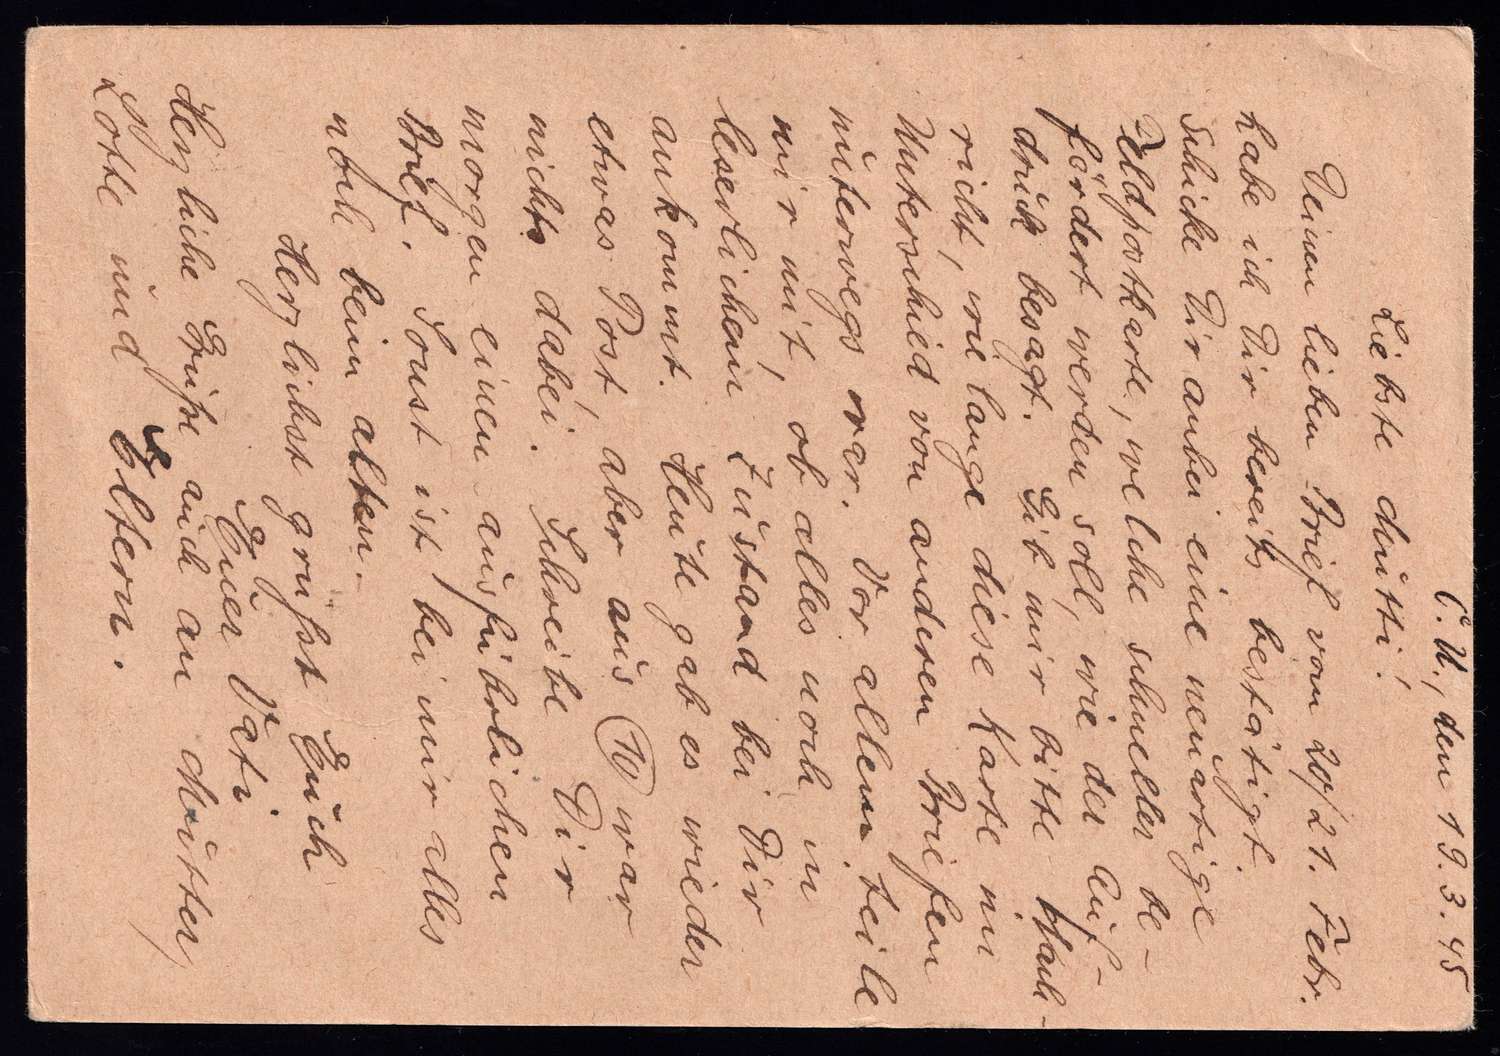 O. U., den 19.3.45
Liebste Mutti!
Deinen lieben Brief vom 20/21. Febr.
habe ich Dir bereits bestätigt.
Schicke Dir anbei eine neuartige
Feldpostkarte, welche schneller be-
fördert werden soll, wie der Auf-
druck besagt. Gib mir bitte Nach-
richt, wie lange diese Karte im
Unterschied von anderen Briefen
unterwegs war. Vor allem teile
mir mit, ob alles noch in
leserlichem Zustand bei Dir
ankommt. Heute gab es wieder
etwas Post, aber aus W war
nichts dabei. Schreibe Dir
morgen einen ausführlichen
Brief. Sonst ist bei mir alles
noch beim alten.
Herzlichst grüßt Euch
Euer Vati
Herzliche Grüße auch an Mutter,
Lotte und Eltern.